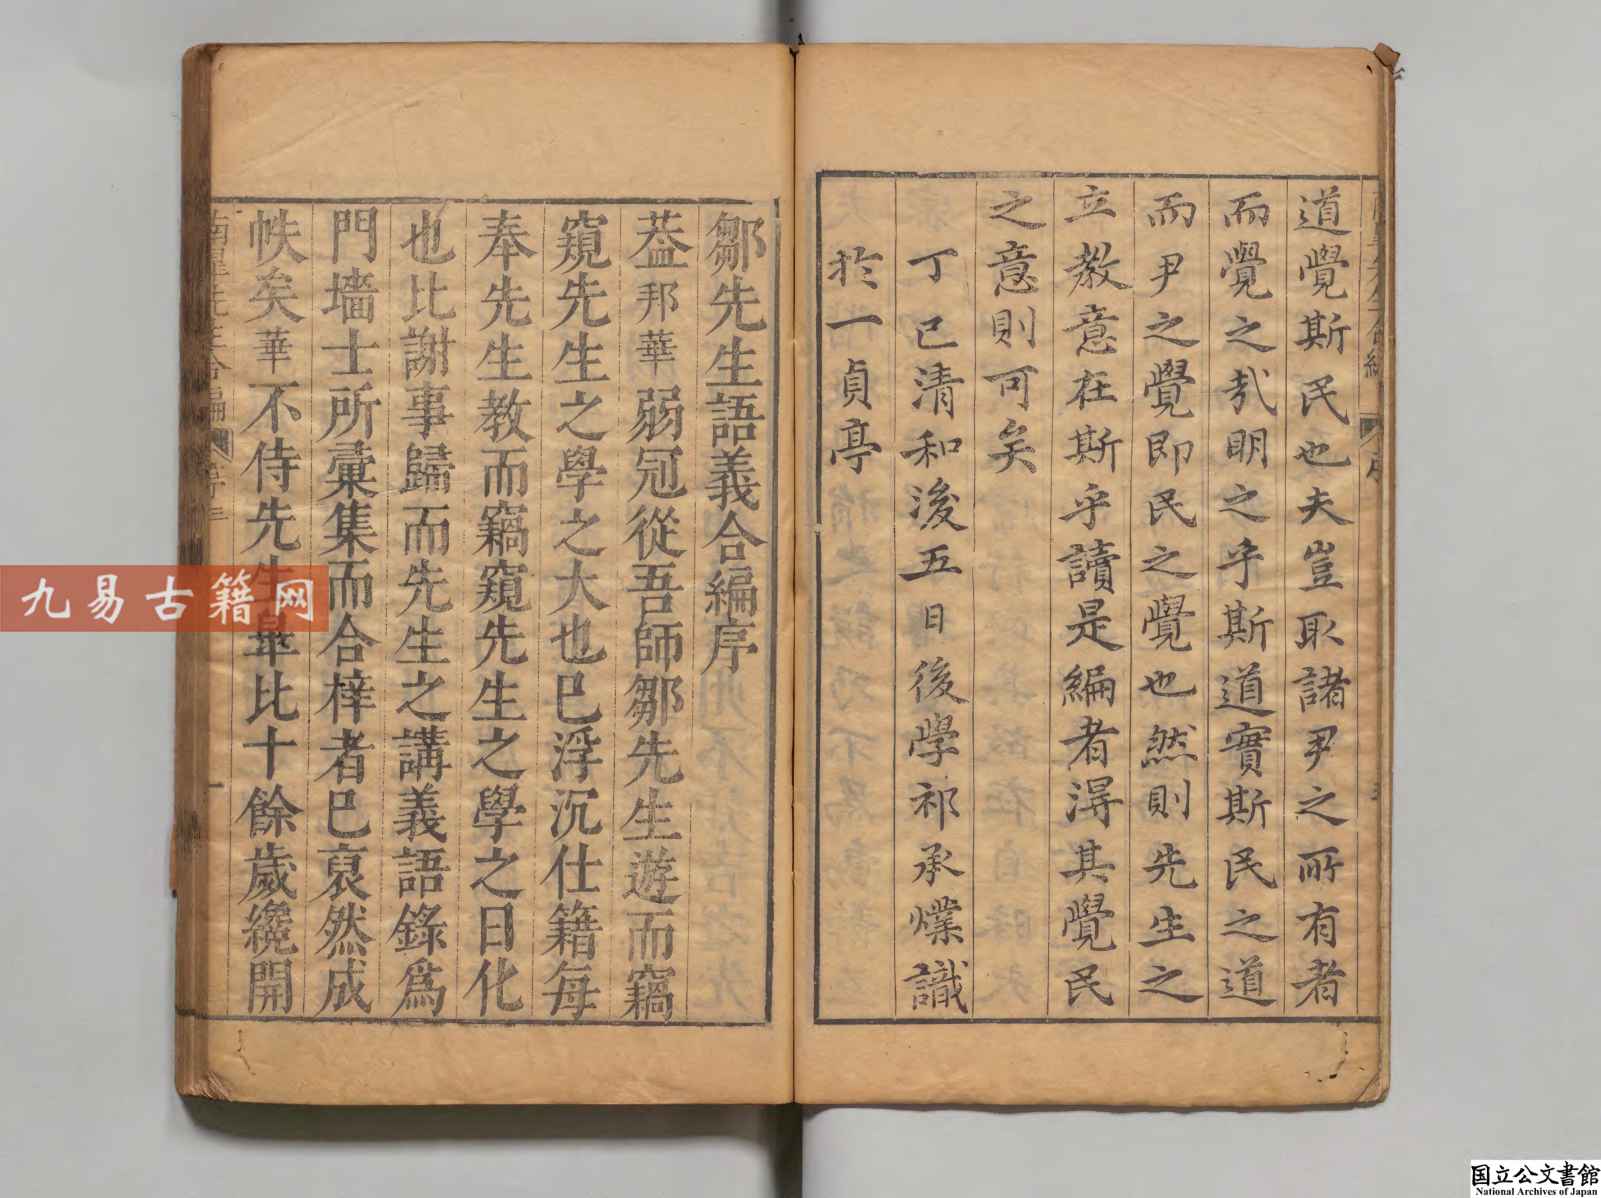 道覺斯民也夫豈取諸尹之所有者
而覺之哉明之乎斯道實斯民之道
而尹之覺即民之覺也然則先生之
立教意在斯乎讀是編者得其覺民
之意則可矣
丁巳清和後五日後學祁承㸁識
於一貞亭
鄒先生語義合編序
葢邦華弱冠從吾師鄒先生遊而竊
窺先生之學之大也已浮沉仕籍每
奉先生教而竊窺先生之學之日化
也比謝事歸而先生之講義語錄爲
門墻士所彙集而合梓者已裒然成
帙矣華不侍先生臯比十餘歲纔開
南皐先生合編 序 三
九易古籍网
国立公文書館
National Archives of Japan